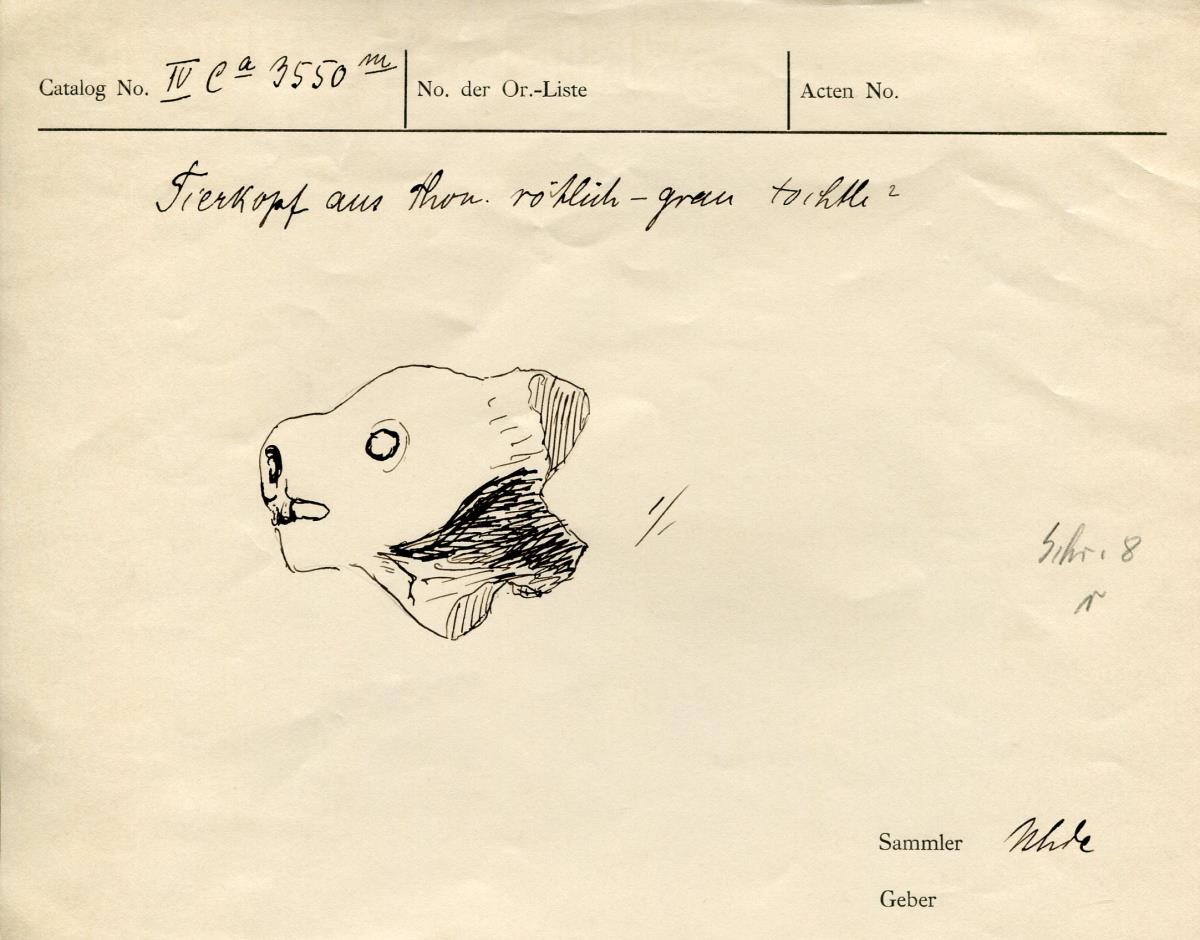 Catalog No. IV Ca 3550 m
No. der Or.-Liste
Acten No.
Tierkopf aus Thon. rötlich - grau tochtli ?
1/1
Schr. 8
Sammler Uhde
Geber